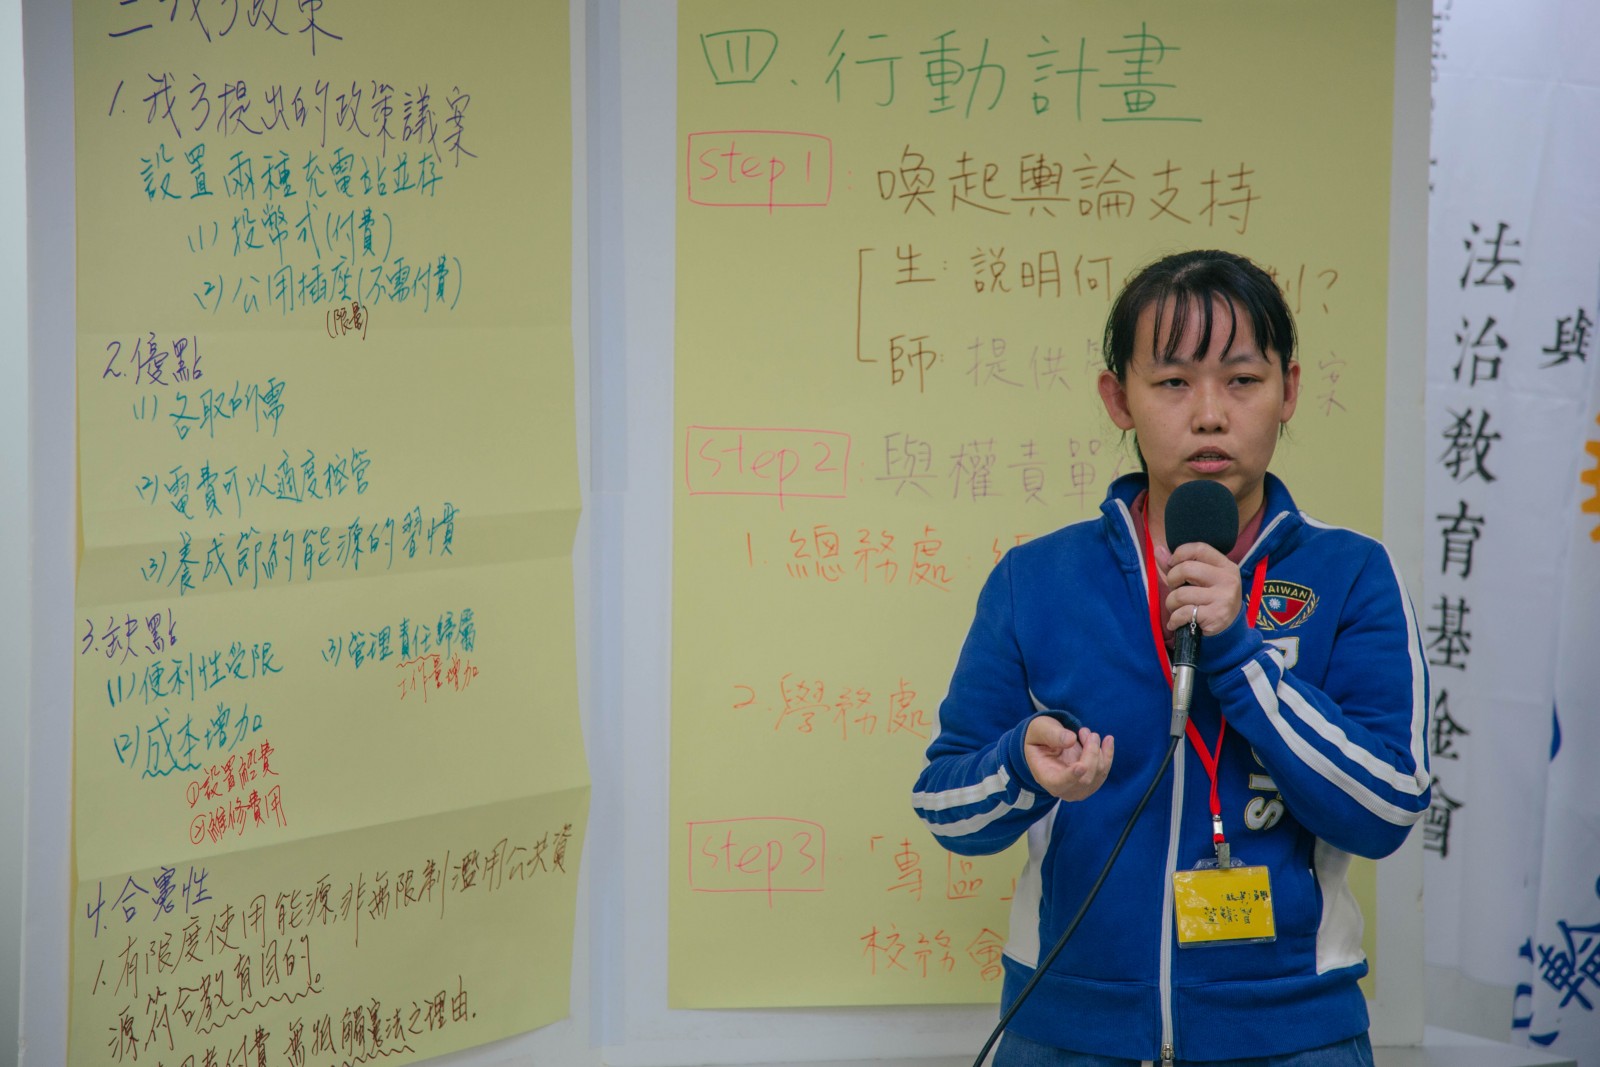 三我方政策
1.我方提出的政策議案
設置兩種充電站並存
(1)投幣式(付費)
(2)公用插座(不需付費)
(限量)
2.優點
(1)各取所需
(2)電費可以適度控管
(3)養成節約能源的習慣
3.缺點
(1)便利性受限
(3)管理責任歸屬
工作量增加
(2)成本增加
①設置經費
②維修費用
4.合憲性
1.有限度使用能源非無限制濫用公共資
源符合教育目的。
付費無牴觸憲法之理由.
四.行動計畫
step1:喚起輿論支持
生:說明何
?
師:提供
案
step2:與權責單
1.總務處:
2.學務處
step3:「專區」
校務會
TAIWAN
法治教育基金會
與
輪